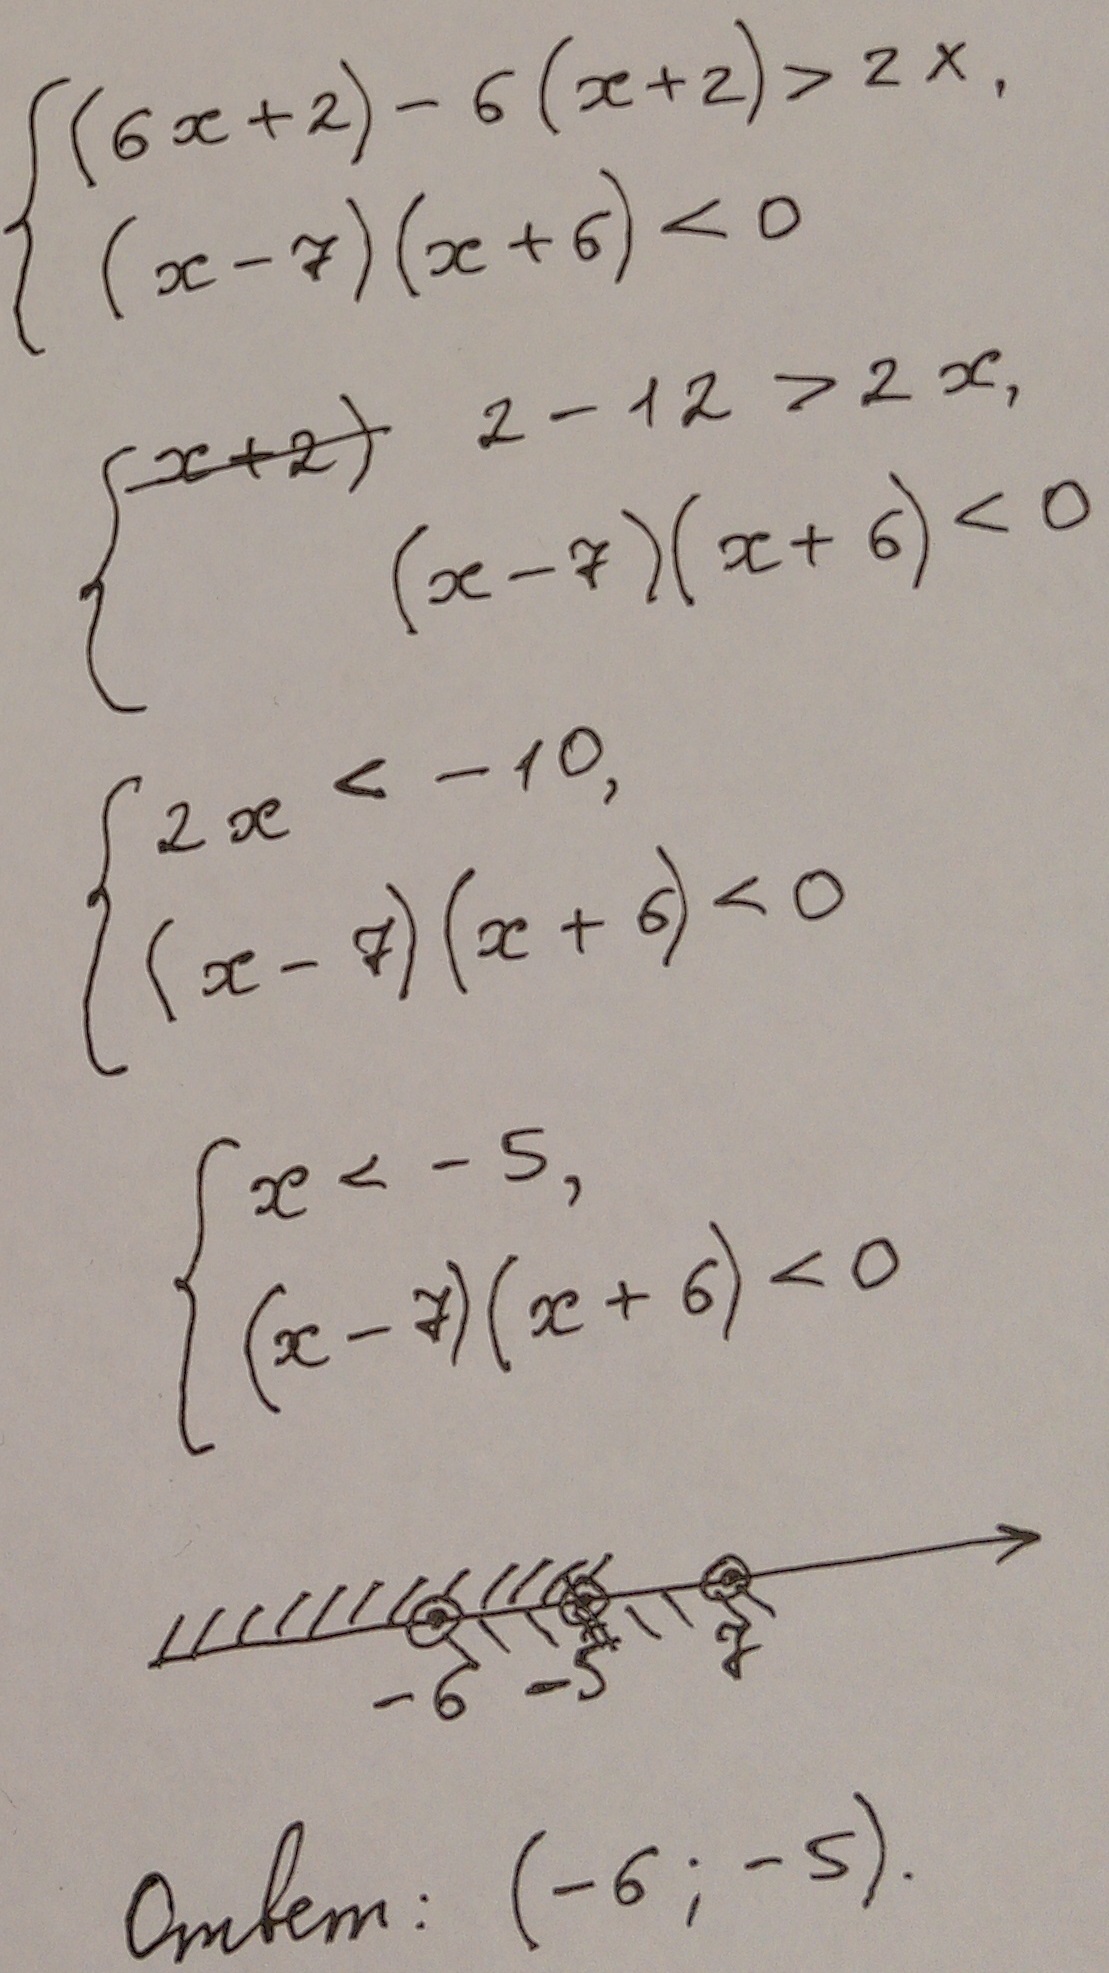 (6x+2)-6(x+2)>2x,
(x-7)(x+6)<0
x+2) 2-12>2x,
(x-7)(x+6)<0
2x<-10,
(x-7)(x+6)<0
x<-5,
(x-7)(x+6)<0
-6 -5 7
Ответ: (-6; -5).